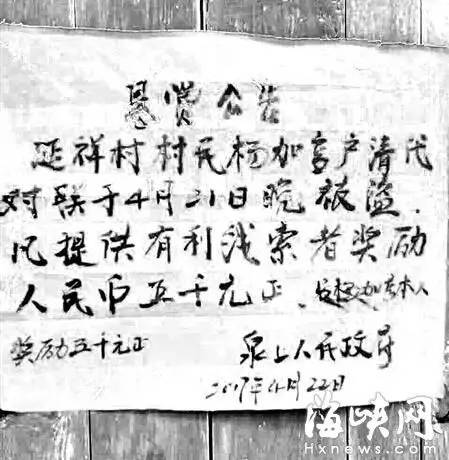 悬赏公告
延祥村村民杨加户清代
对联于4月21日晚被盗.
凡提供有利线索者奖励
人民币五千元正、杨加本人
奖励五千元正
泉上人民政府
2017年4月22日
海峡网
Hxnews.com